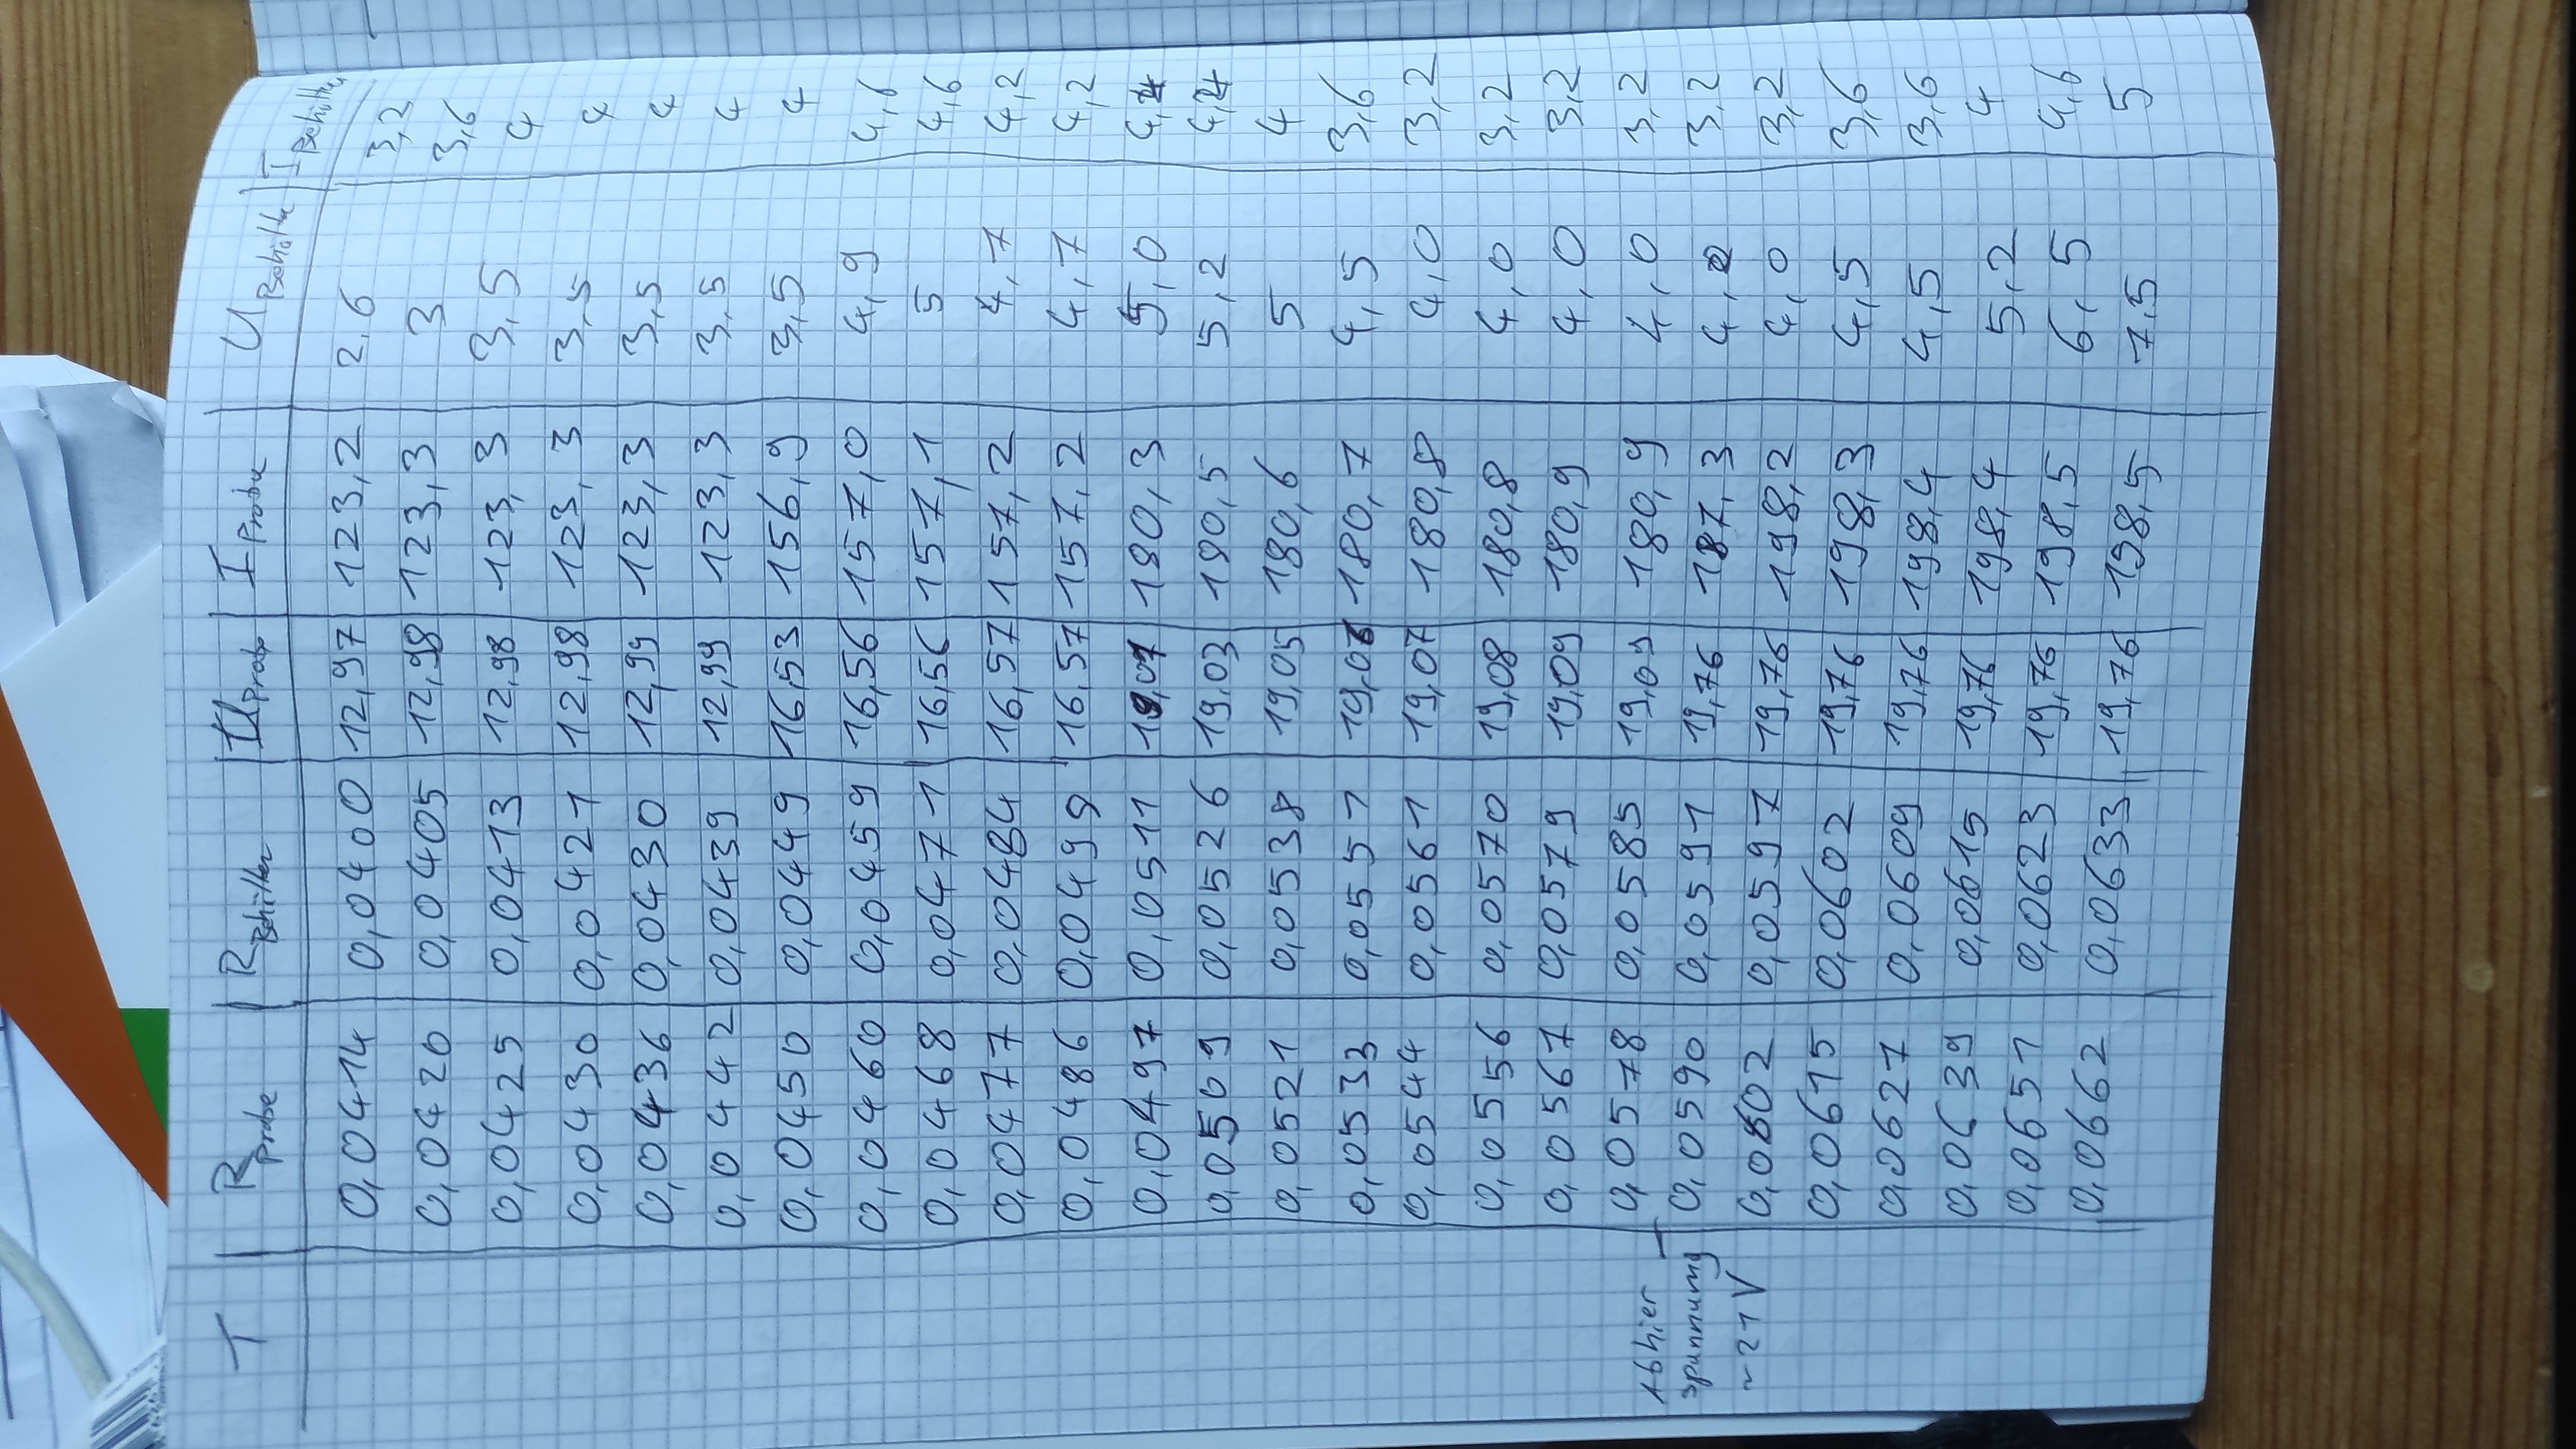 T R Probe R Behälter U Probe I Probe U Behälter I Behälter
0,0414 0,0400 12,97 123,2 2,6 3,2
0,0420 0,0405 12,98 123,3 3 3,6
0,0425 0,0413 12,98 123,3 3,5 4
0,0430 0,0421 12,98 123,3 3,5 4
0,0436 0,0430 12,99 123,3 3,5 4
0,0442 0,0439 12,99 123,3 3,5 4
0,0450 0,0449 16,53 156,9 3,5 4
0,0460 0,0459 16,56 157,0 4,9 4,6
0,0468 0,0471 16,56 157,1 5 4,6
0,0477 0,0484 16,57 157,2 4,7 4,2
0,0486 0,0499 16,57 157,2 4,7 4,2
0,0497 0,0511 19,01 180,3 5,0
0,0509 0,0526 19,03 180,5 5,2
0,0521 0,0538 19,05 180,6 5 4
0,0533 0,0551 19,06 180,7 4,5 3,6
0,0544 0,0561 19,07 180,8 4,0 3,2
0,0556 0,0570 19,08 180,8 4,0 3,2
0,0567 0,0579 19,09 180,9 4,0 3,2
0,0578 0,0585 19,09 180,9 4,0 3,2
Ab hier
spannung
~21 V
0,0590 0,0591 19,76 187,3 4,0 3,2
0,0602 0,0597 19,76 198,2 4,0 3,2
0,0615 0,0602 19,76 198,3 4,5 3,6
0,0627 0,0609 19,76 198,4 4,5 3,6
0,0639 0,0615 19,76 198,4 5,2 4
0,0651 0,0623 19,76 198,5 6,5 4,6
0,0662 0,0633 19,76 198,5 7,5 5